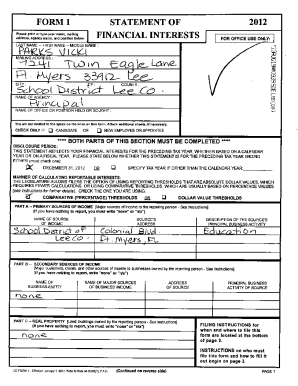 FORM 1 STATEMENT OF 2012
Please print or type your name, mailing address, agency name, and position below:
FINANCIAL INTERESTS
FOR OFFICE USE ONLY:
LAST NAME -- FIRST NAME -- MIDDLE NAME
PARKS VICKI
MAILING ADDRESS
Twin Eagle Lane
Ft. Myers 33912 Lee
CITY ZIP COUNTY
School District Lee Co.
NAME OF AGENCY
Principal
NAME OF OFFICE OR POSITION HELD OR SOUGHT
You are not limited to the space on the lines on this form. Attach additional sheets, if necessary.
CHECK ONLY IF CANDIDATE OR NEW EMPLOYEE OR APPOINTEE
**** BOTH PARTS OF THIS SECTION MUST BE COMPLETED ****
DISCLOSURE PERIOD:
THIS STATEMENT REFLECTS YOUR FINANCIAL INTERESTS FOR THE PRECEDING TAX YEAR, WHETHER BASED ON A CALENDAR
YEAR OR ON A FISCAL YEAR. PLEASE STATE BELOW WHETHER THIS STATEMENT IS FOR THE PRECEDING TAX YEAR ENDING
EITHER (must check one):
DECEMBER 31, 2012 OR SPECIFY TAX YEAR IF OTHER THAN THE CALENDAR YEAR:
MANNER OF CALCULATING REPORTABLE INTERESTS:
THE LEGISLATURE ALLOWS FILERS THE OPTION OF USING REPORTING THRESHOLDS THAT ARE ABSOLUTE DOLLAR VALUES, WHICH
REQUIRES FEWER CALCULATIONS, OR USING COMPARATIVE THRESHOLDS, WHICH ARE USUALLY BASED ON PERCENTAGE VALUES
(see instructions for further details). CHECK THE ONE YOU ARE USING:
COMPARATIVE (PERCENTAGE) THRESHOLDS OR DOLLAR VALUE THRESHOLDS
PART A -- PRIMARY SOURCES OF INCOME [Major sources of income to the reporting person - See instructions]
(If you have nothing to report, you must write "none" or "n/a")
NAME OF SOURCE OF INCOME SOURCE'S ADDRESS DESCRIPTION OF THE SOURCE'S PRINCIPAL BUSINESS ACTIVITY
School District of Colonial Blvd. Education
Lee Co. Ft. Myers, FL
PART B -- SECONDARY SOURCES OF INCOME
[Major customers, clients, and other sources of income to businesses owned by the reporting person - See instructions]
(If you have nothing to report, you must write "none" or "n/a")
NAME OF BUSINESS ENTITY NAME OF MAJOR SOURCES OF BUSINESS' INCOME ADDRESS OF SOURCE PRINCIPAL BUSINESS ACTIVITY OF SOURCE
none
PART C -- REAL PROPERTY [Land, buildings owned by the reporting person - See instructions]
(If you have nothing to report, you must write "none" or "n/a")
none
FILING INSTRUCTIONS for
when and where to file this
form are located at the bottom
of page 2.
INSTRUCTIONS on who must
file this form and how to fill it
out begin on page 3.
(Continued on reverse side) PAGE 1